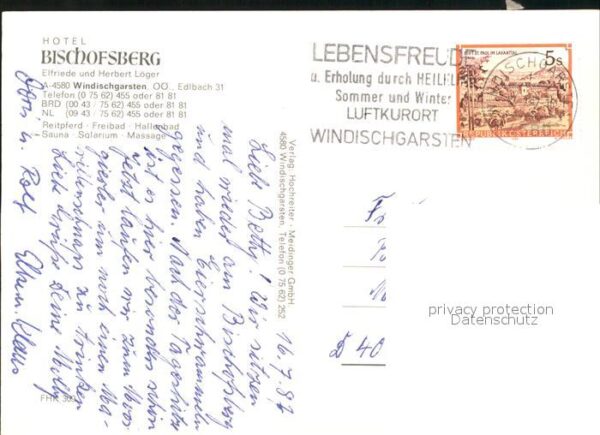 HOTEL
BISCHOFSBERG
Elfriede und Herbert Löger
A-4580 Windischgarsten, OÖ., Edlbach 31
Telefon (0 75 62) 455 oder 81 81
BRD (00 43 / 75 62) 455 oder 81 81
NL (09 43 / 75 62) 455 oder 81 81
Reitpferd · Freibad · Hallenbad
Sauna · Solarium · Massage
FHK
LEBENSFREUDE
u. Erholung durch HEILKLIMA
Sommer und Winter
LUFTKURORT
WINDISCHGARSTEN
5s
REPUBLIK ÖSTERREICH
WINDISCHGARSTEN
Verlag: Hochreiter - Meidinger GmbH
4580 Windischgarsten, Telefon (0 75 62) 252
16.7.87
Liebe Betty! Wir sitzen
mal wieder am Bischofsberg
und haben Eierschwammerln
gegessen. Nach der Tageshitze
ist es hier besonders schön
Jetzt laufen wir zum
um noch einen
zu trinken
Liebe Grüße Deine
Doris u. Rolf
Klaus
Fr
D 40
privacy protection
Datenschutz